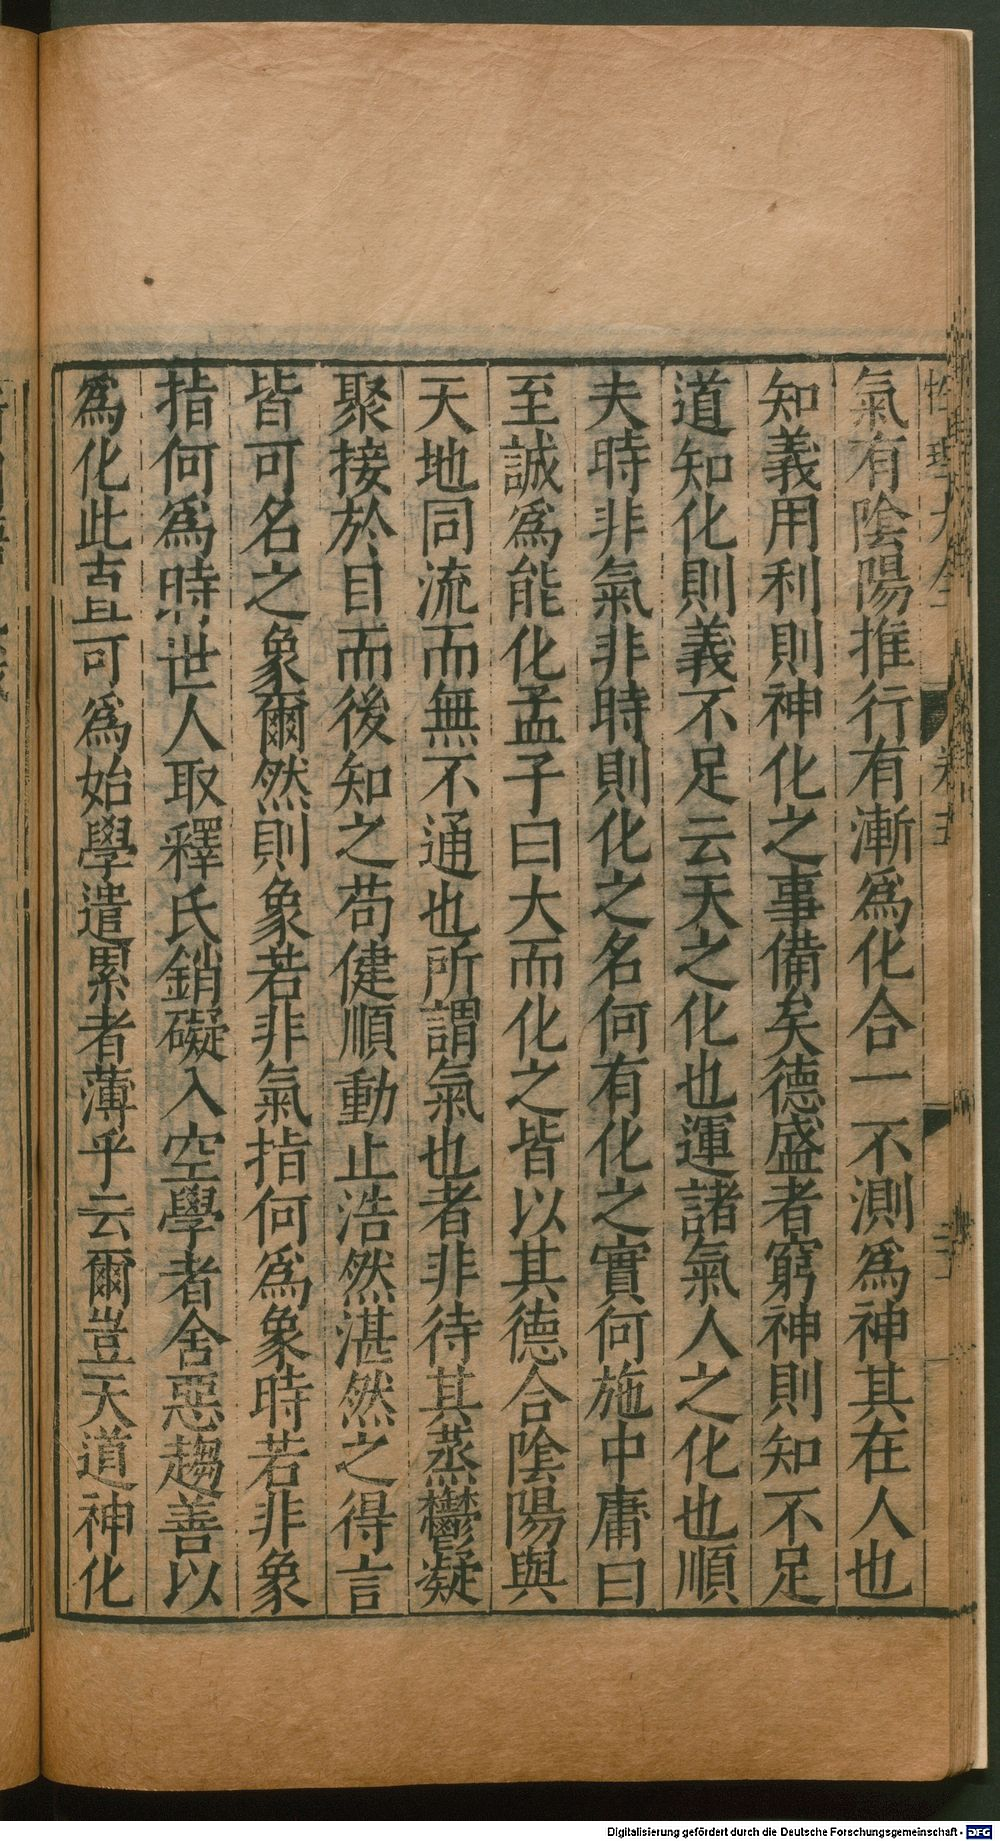 氣有陰陽推行有漸爲化合一不測爲神其在人也
知義用利則神化之事備矣德盛者窮神則知不足
道知化則義不足云天之化也運諸氣人之化也順
夫時非氣非時則化之名何有化之實何施中庸曰
至誠爲能化孟子曰大而化之皆以其德合陰陽與
天地同流而無不通也所謂氣也者非待其蒸鬱凝
聚接於目而後知之苟健順動止浩然湛然之得言
皆可名之象爾然則象若非氣指何爲象時若非象
指何爲時世人取釋氏銷礙入空學者舍惡趨善以
爲化此直可爲始學遣累者薄乎云爾豈天道神化
Digitalisierung gefördert durch die Deutsche Forschungsgemeinschaft - DFG